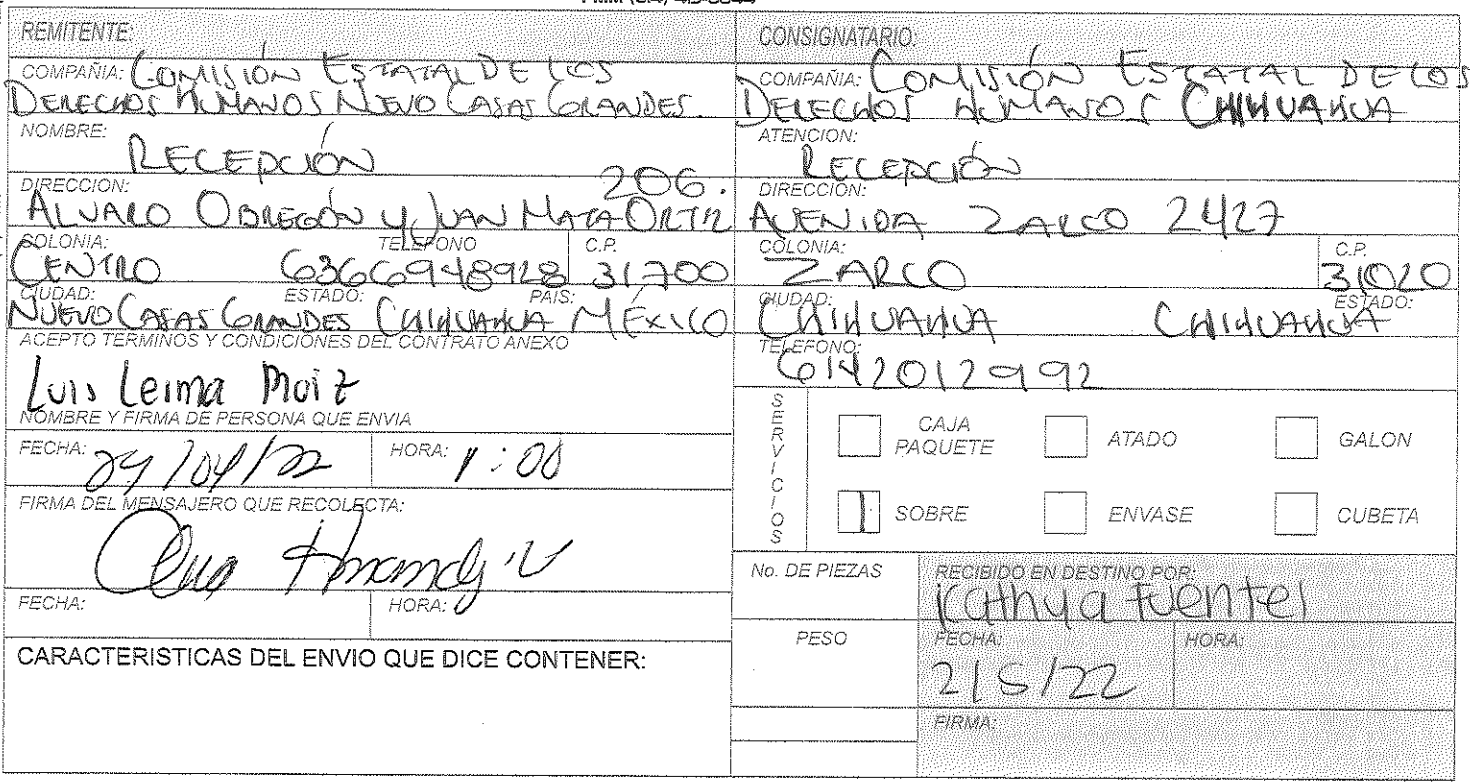 REMITENTE:
COMPAÑIA: COMISIÓN ESTATAL DE LOS
DERECHOS HUMANOS NUEVO CASAS GRANDES.
NOMBRE:
RECEPCIÓN
206.
DIRECCION:
ALVARO OBREGÓN Y JUAN MATA ORTIZ
COLONIA: TELEFONO C.P.
CENTRO 6366948928 31700
CIUDAD: ESTADO: PAIS:
NUEVO CASAS GRANDES CHIHUAHUA MÉXICO
ACEPTO TERMINOS Y CONDICIONES DEL CONTRATO ANEXO
Luis Leima
NOMBRE Y FIRMA DE PERSONA QUE ENVIA
FECHA: 29/04/22 HORA: 1:00
FIRMA DEL MENSAJERO QUE RECOLECTA:
FECHA: HORA:
CARACTERISTICAS DEL ENVIO QUE DICE CONTENER:
CONSIGNATARIO:
COMPAÑIA: COMISIÓN ESTATAL DE LOS
DERECHOS HUMANOS CHIHUAHUA
ATENCION:
RECEPCIÓN
DIRECCIÓN:
AVENIDA ZARCO 2427
COLONIA: C.P.
ZARCO 31020
CIUDAD: ESTADO:
CHIHUAHUA CHIHUAHUA
TELEFONO:
6142012992
SERVICIOS
CAJA PAQUETE ATADO GALON
SOBRE ENVASE CUBETA
No. DE PIEZAS
RECIBIDO EN DESTINO POR:
Kathya Fuentes
PESO
FECHA: HORA:
2/5/22
FIRMA: